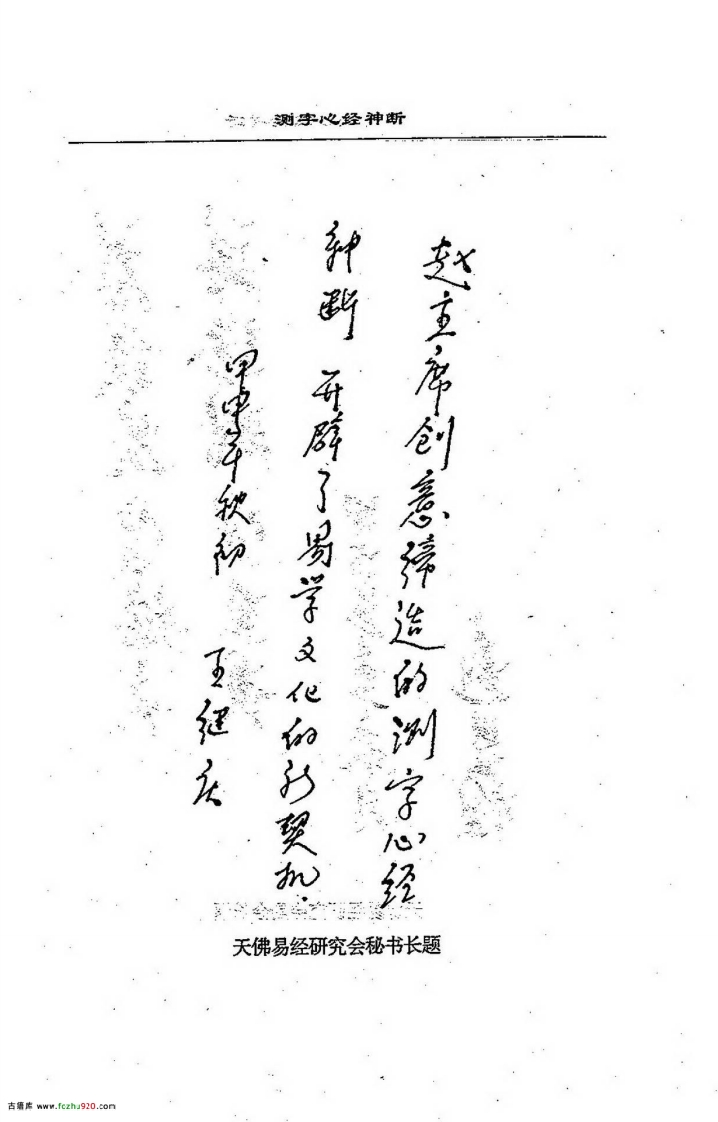 测字心经神断
赵主席创意缔造的测字心经
神断 开辟了易学文化的新契机.
甲申年秋初 王继庆
天佛易经研究会秘书长题
古籍库 www.fczhu920.com